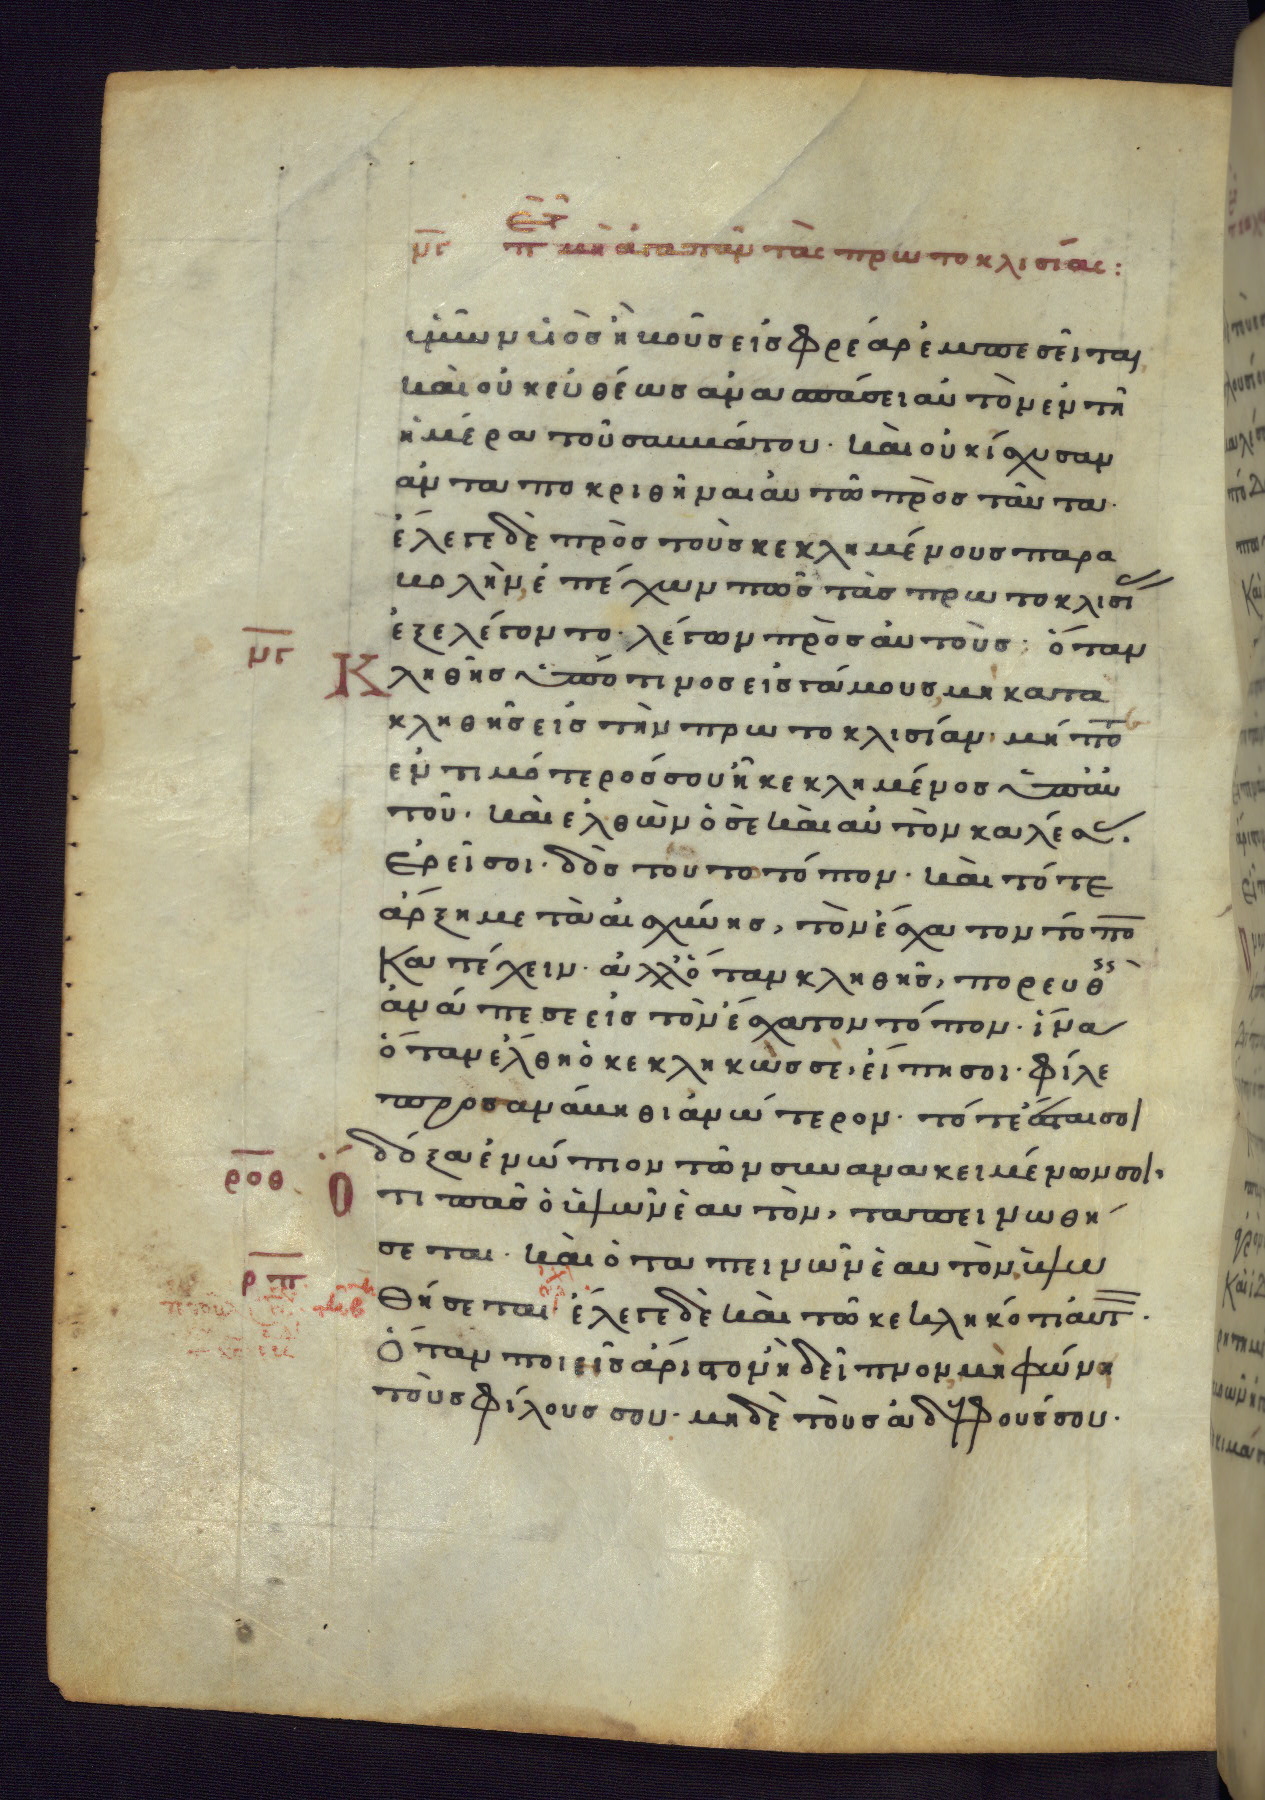 μγ πε μὴ ἀγαπᾶν τὰς πρωτοκλισίας:
ὑμῶν υἱὸς ἢ βοῦς εἰς φρέαρ ἐμπεσεῖται
καὶ οὐκ εὐθέως ἀνασπάσει αὐτὸν ἐν τῇ
ἡμέρα τοῦ σαββάτου· καὶ οὐκ ἴσχυσαν
ἀνταποκριθῆναι αὐτῶ πρὸς ταῦτα·
ἔλεγε δὲ πρὸς τοὺς κεκλημένους παρα
βολὴν, ἐπέχων πῶς τὰς πρωτοκλισί
ἐξελέγοντο· λέγων πρὸς αὐτούς· ὅταν
μγ
Κληθῆς ὑπό τινος εἰς γάμους, μὴ κατα
κληθῆς εἰς τὴν πρωτοκλισίαν· μή πο
ἐντιμότερός σου ἦ κεκλημένος ὑπ' αὐ
τοῦ· καὶ ἐλθὼν ὁ σὲ καὶ αὐτὸν καλέσ·
ἐρεῖ σοι· δὸς τουτο τόπον· καὶ τότε
ἄρξη μετὰ αἰσχύνης, τὸν ἔσχατον τόπο
κατέχειν· ἀλλ' ὅταν κληθῆς, πορευθ
ἀνάπεσε εἰς τὸν ἔσχατον τόπον· ἵνα
ὅταν ἔλθη ὁ κεκληκώς σε, εἴπη σοι· φίλε
προσανάβηθι ἀνώτερον· τότε ἔσται σοι
δόξα ἐνώπιον τῶν συνανακειμένων σοι·
ροθ
Ὅτι πᾶς ὁ ὑψῶν ἑαυτὸν, ταπεινωθή
σεται· καὶ ὁ ταπεινῶν ἑαυτὸν ὑψω
ρπ
θήσεται ἔλεγε δὲ καὶ τῶ κεκληκότι αὐτ·
Ὅταν ποιεῖς ἄριστον ἢ δεῖπνον, μὴ φώνη
τοὺς φίλους σου· μηδὲ τοὺς ἀδελφούς σου·